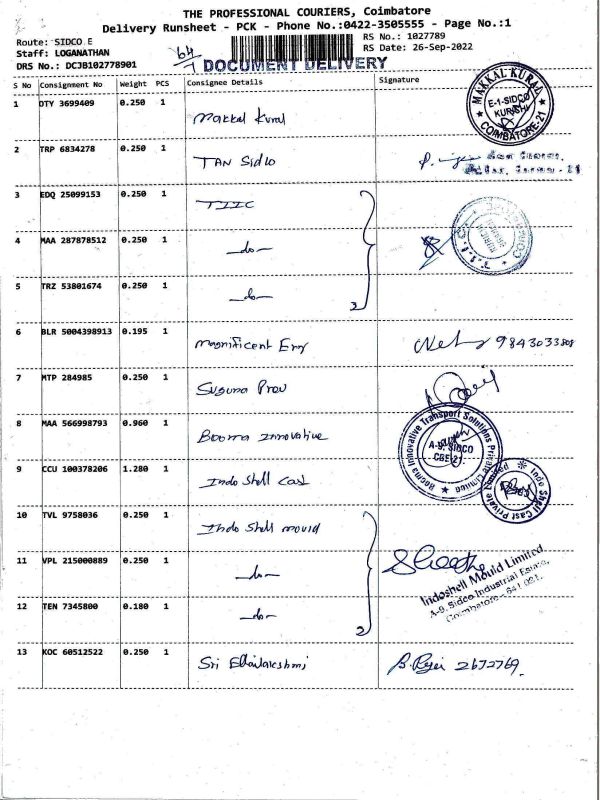 THE PROFESSIONAL COURIERS, Coimbatore
Delivery Runsheet - PCK - Phone No.:0422-3505555 - Page No.:1
Route: SIDCO E
Staff: LOGANATHAN
DRS No.: DCJB102778901
RS No.: 1027789
RS Date: 26-Sep-2022
DOCUMENT DELIVERY
S No Consignment No Weight PCS Consignee Details Signature
1 DTY 3699409 0.250 1 Makkal Kural
MAKKAL KURAL
E-1-SIDCO
KURICHI
COIMBATORE-21
2 TRP 6834278 0.250 1 TAN Sidco
3 EDQ 25099153 0.250 1 TIIC
4 MAA 287878512 0.250 1 -do-
T.I.I.C.
KURICHI
BRANCH
5 TRZ 53801674 0.250 1 -do-
3
6 BLR 5004398913 0.195 1 Magnificent Eng 9843033808
7 MTP 284985 0.250 1 Suguna Prov
8 MAA 566998793 0.960 1 Booma Innovative
Booma Innovative Transport Solutions Private Limited
A-9, SIDCO
CBE-21.
9 CCU 100378206 1.280 1 Indo Shell Cast
Indo Shell Cast Private Limited
10 TVL 9758036 0.250 1 Indo Shell mould
11 VPL 215000889 0.250 1 -do-
Indoshell Mould Limited
A-9, Sidco Industrial Estate,
Coimbatore - 641 021.
12 TEN 7345800 0.180 1 -do-
2
13 KOC 60512522 0.250 1 Sri 2672769